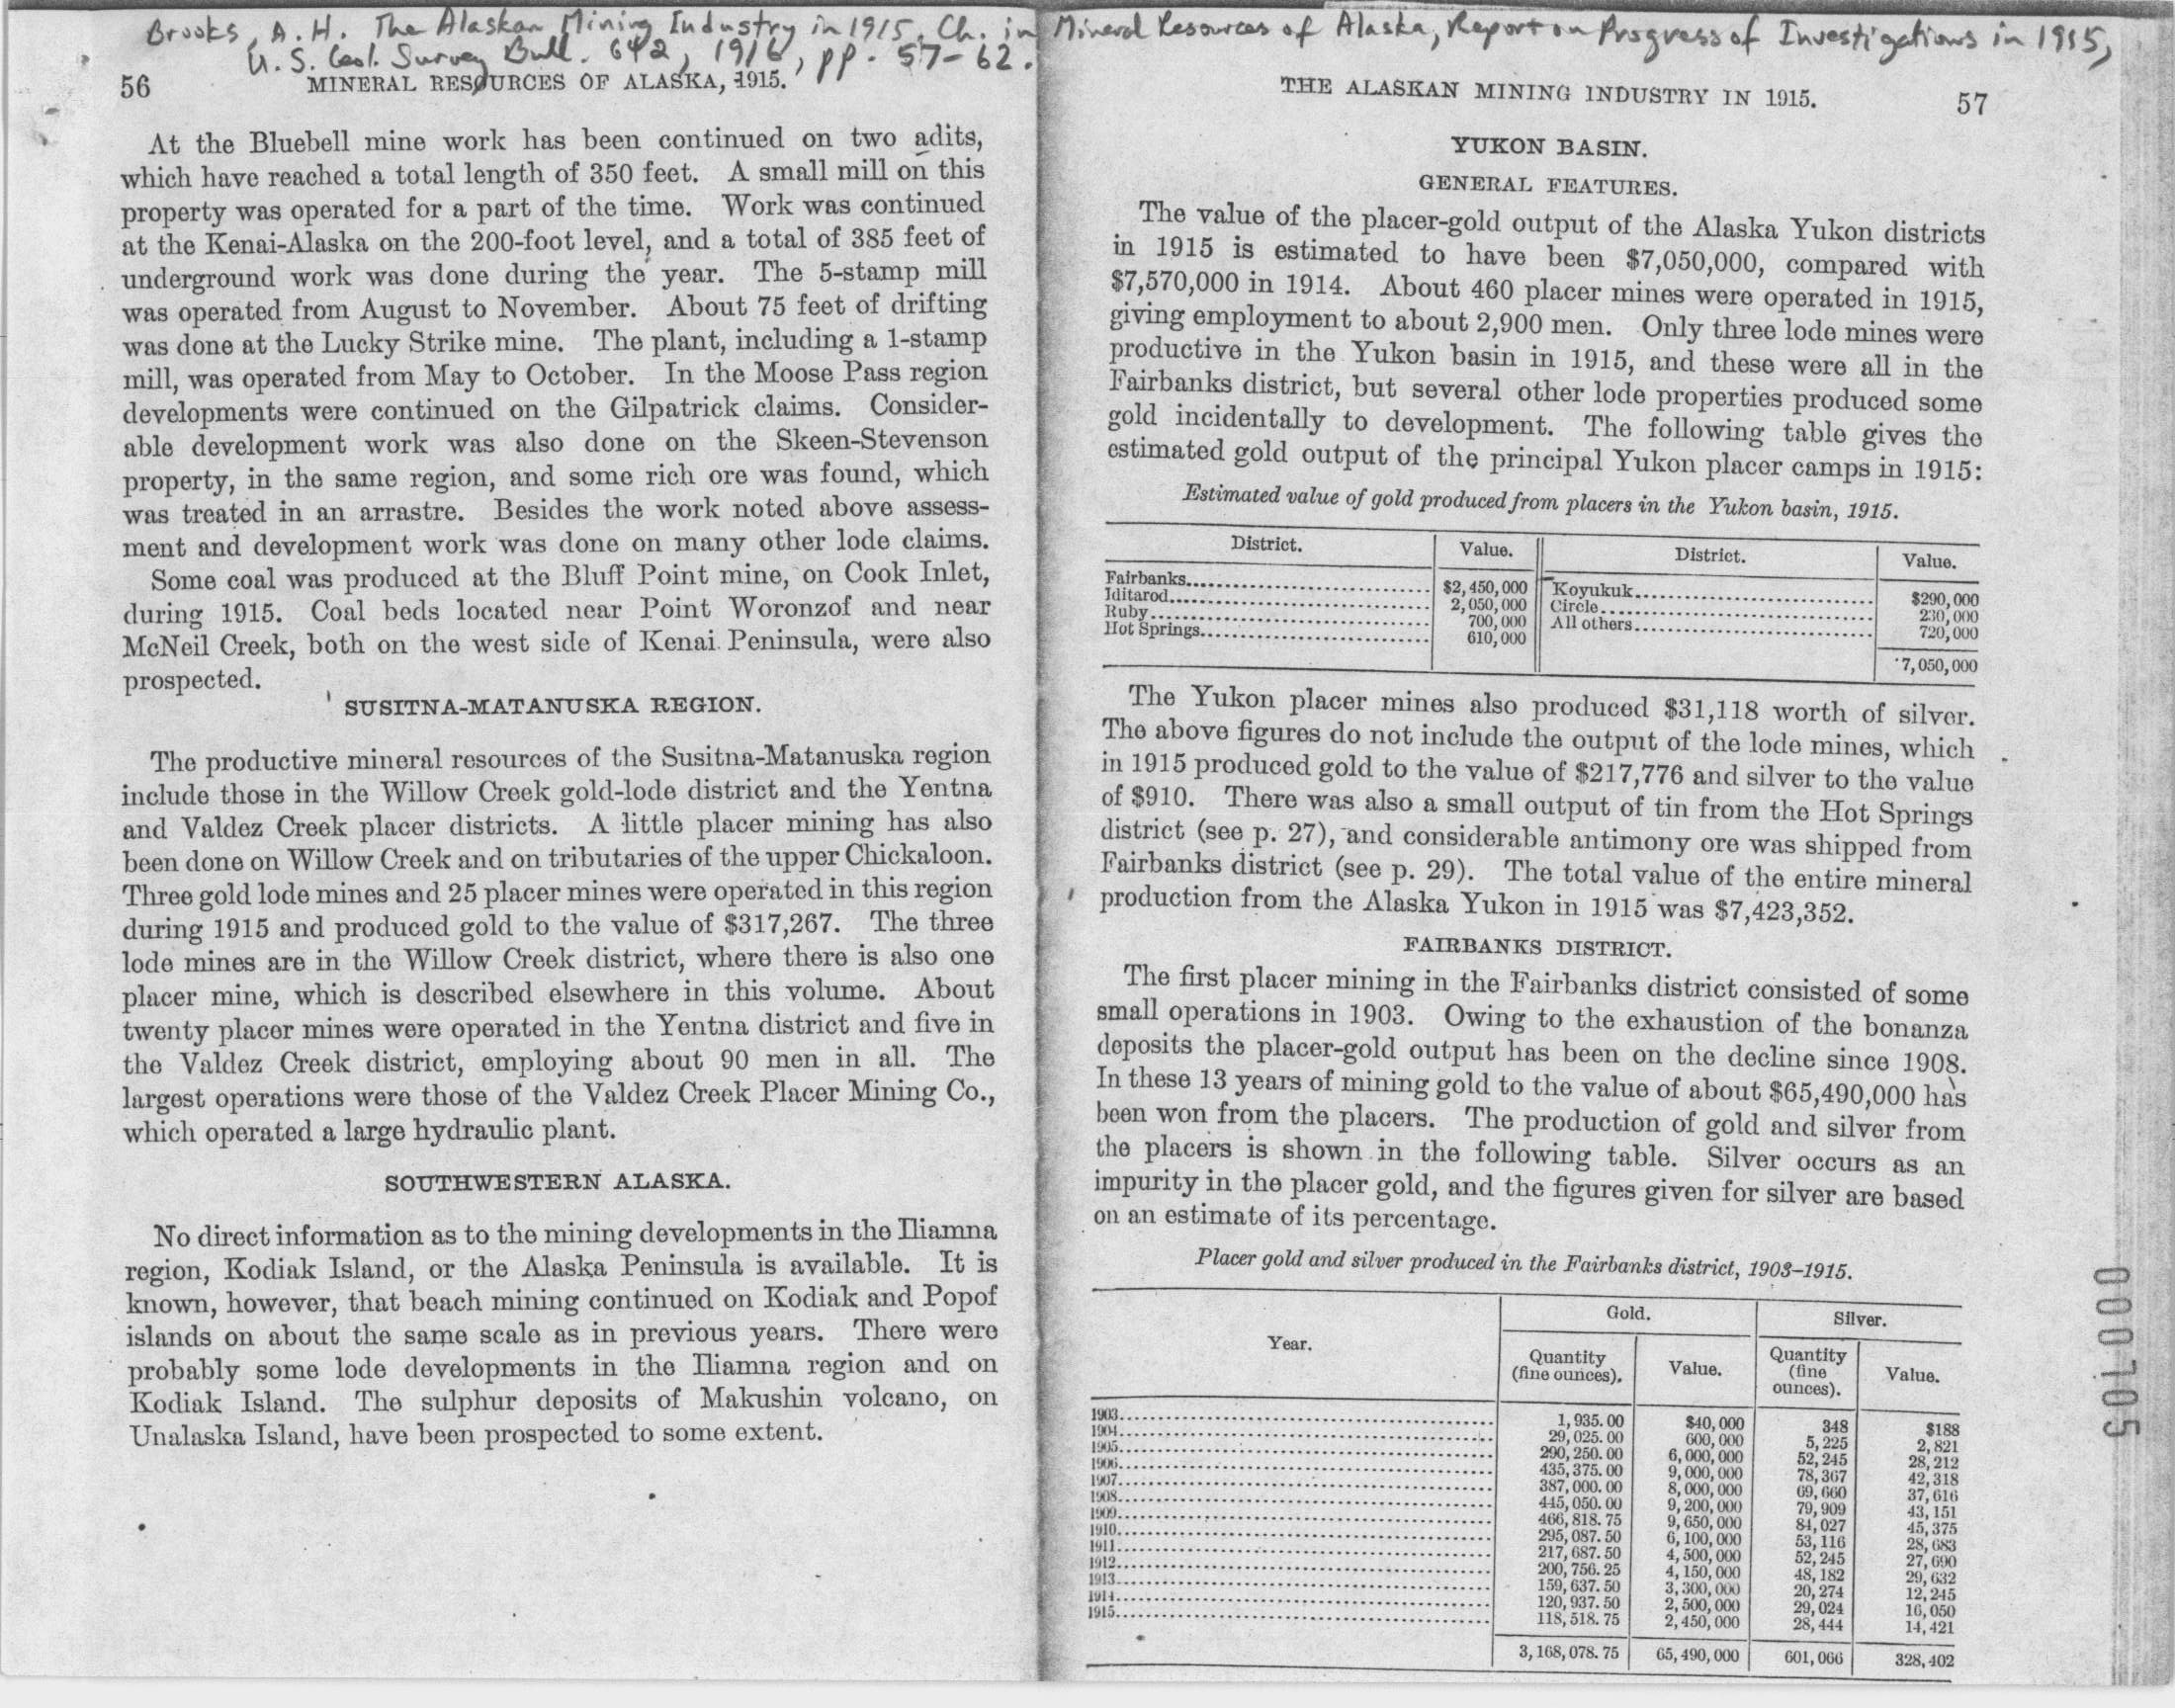 Brooks, A. H. The Alaskan Mining Industry in 1915. Ch. in Mineral Resources of Alaska, Report on Progress of Investigations in 1915,
U.S. Geol. Survey Bull. 642, 1916, pp. 57-62.
56 MINERAL RESOURCES OF ALASKA, 1915.
At the Bluebell mine work has been continued on two adits,
which have reached a total length of 350 feet. A small mill on this
property was operated for a part of the time. Work was continued
at the Kenai-Alaska on the 200-foot level, and a total of 385 feet of
underground work was done during the year. The 5-stamp mill
was operated from August to November. About 75 feet of drifting
was done at the Lucky Strike mine. The plant, including a 1-stamp
mill, was operated from May to October. In the Moose Pass region
developments were continued on the Gilpatrick claims. Consider-
able development work was also done on the Skeen-Stevenson
property, in the same region, and some rich ore was found, which
was treated in an arrastre. Besides the work noted above assess-
ment and development work was done on many other lode claims.
Some coal was produced at the Bluff Point mine, on Cook Inlet,
during 1915. Coal beds located near Point Woronzof and near
McNeil Creek, both on the west side of Kenai Peninsula, were also
prospected.
SUSITNA-MATANUSKA REGION.
The productive mineral resources of the Susitna-Matanuska region
include those in the Willow Creek gold-lode district and the Yentna
and Valdez Creek placer districts. A little placer mining has also
been done on Willow Creek and on tributaries of the upper Chickaloon.
Three gold lode mines and 25 placer mines were operated in this region
during 1915 and produced gold to the value of $317,267. The three
lode mines are in the Willow Creek district, where there is also one
placer mine, which is described elsewhere in this volume. About
twenty placer mines were operated in the Yentna district and five in
the Valdez Creek district, employing about 90 men in all. The
largest operations were those of the Valdez Creek Placer Mining Co.,
which operated a large hydraulic plant.
SOUTHWESTERN ALASKA.
No direct information as to the mining developments in the Iliamna
region, Kodiak Island, or the Alaska Peninsula is available. It is
known, however, that beach mining continued on Kodiak and Popof
islands on about the same scale as in previous years. There were
probably some lode developments in the Iliamna region and on
Kodiak Island. The sulphur deposits of Makushin volcano, on
Unalaska Island, have been prospected to some extent.
THE ALASKAN MINING INDUSTRY IN 1915. 57
YUKON BASIN.
GENERAL FEATURES.
The value of the placer-gold output of the Alaska Yukon districts
in 1915 is estimated to have been $7,050,000, compared with
$7,570,000 in 1914. About 460 placer mines were operated in 1915,
giving employment to about 2,900 men. Only three lode mines were
productive in the Yukon basin in 1915, and these were all in the
Fairbanks district, but several other lode properties produced some
gold incidentally to development. The following table gives the
estimated gold output of the principal Yukon placer camps in 1915:
Estimated value of gold produced from placers in the Yukon basin, 1915.
District. Value. District. Value.
Fairbanks $2,450,000 Koyukuk $290,000
Iditarod 2,050,000 Circle 230,000
Ruby 700,000 All others 720,000
Hot Springs 610,000
7,050,000
The Yukon placer mines also produced $31,118 worth of silver.
The above figures do not include the output of the lode mines, which
in 1915 produced gold to the value of $217,776 and silver to the value
of $910. There was also a small output of tin from the Hot Springs
district (see p. 27), and considerable antimony ore was shipped from
Fairbanks district (see p. 29). The total value of the entire mineral
production from the Alaska Yukon in 1915 was $7,423,352.
FAIRBANKS DISTRICT.
The first placer mining in the Fairbanks district consisted of some
small operations in 1903. Owing to the exhaustion of the bonanza
deposits the placer-gold output has been on the decline since 1908.
In these 13 years of mining gold to the value of about $65,490,000 has
been won from the placers. The production of gold and silver from
the placers is shown in the following table. Silver occurs as an
impurity in the placer gold, and the figures given for silver are based
on an estimate of its percentage.
Placer gold and silver produced in the Fairbanks district, 1903–1915.
Year. Gold. Silver.
Quantity (fine ounces). Value. Quantity (fine ounces). Value.
1903 1,935.00 $40,000 348 $188
1904 29,025.00 600,000 5,225 2,821
1905 290,250.00 6,000,000 52,245 28,212
1906 435,375.00 9,000,000 78,367 42,318
1907 387,000.00 8,000,000 69,660 37,616
1908 445,050.00 9,200,000 79,909 43,151
1909 466,818.75 9,650,000 84,027 45,375
1910 295,087.50 6,100,000 53,116 28,683
1911 217,687.50 4,500,000 52,245 27,690
1912 200,756.25 4,150,000 48,182 29,632
1913 159,637.50 3,300,000 20,274 12,245
1914 120,937.50 2,500,000 29,024 16,050
1915 118,518.75 2,450,000 28,444 14,421
3,168,078.75 65,490,000 601,066 328,402
000705